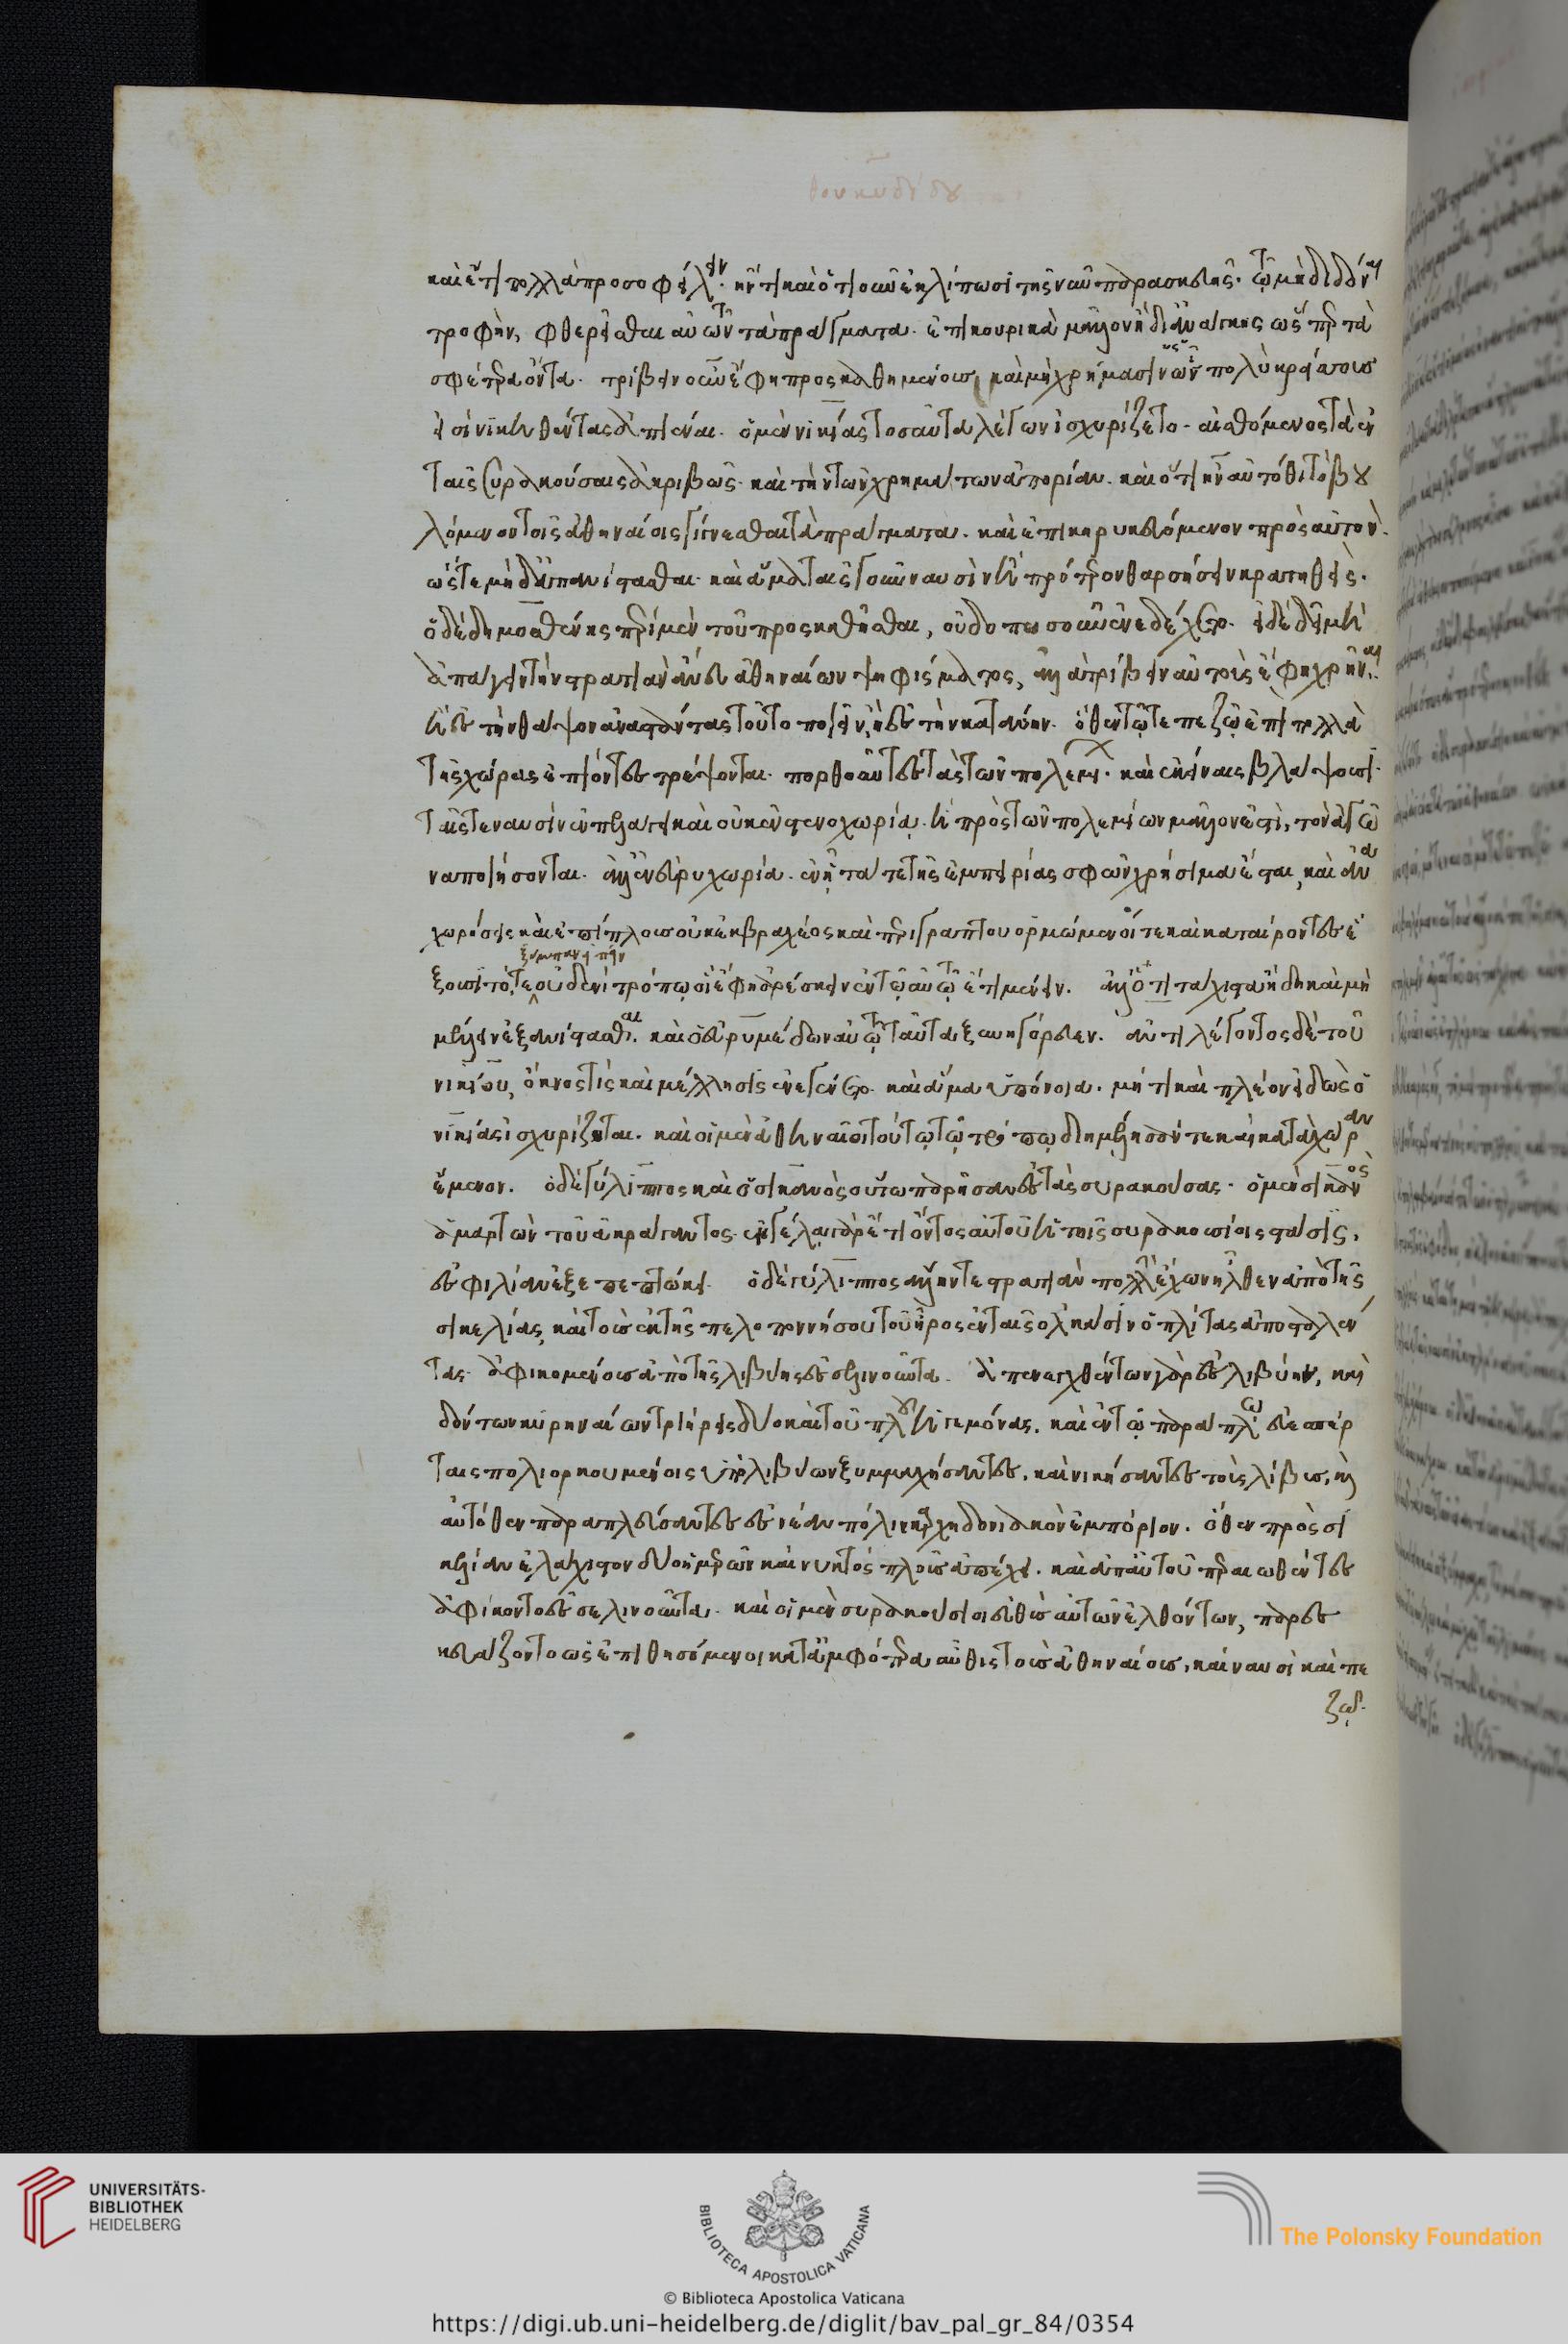 θουκυδίδου
καὶ ἔτι πολλὰ προσοφείλειν· ἤν τι καὶ ὁτιοῦν ἐκλίπωσι τῆς νῦν παρασκευῆς· τῷ μὴ διδόναι
τροφὴν, φθερεῖσθαι αὐτῶν τὰ πράγματα. ἐπικουρικὰ μᾶλλον ἢ δι' ἀνάγκης ὥσπερ τὰ
σφέτερα ὄντα. τρίβειν οὖν ἔφη προσκαθημένους καὶ μὴ χρήμασιν ὧν πολὺ κρείσσους
εἰσὶ νικηθέντας ἀπιέναι. ὁ μὲν νικίας τοσαῦτα λέγων ἰσχυρίζετο. αἰσθόμενος τὰ ἐν
ταῖς συρακούσαις ἀκριβῶς. καὶ τὴν τῶν χρημάτων ἀπορίαν. καὶ ὅτι ἦν αὐτόθι τὸ βου
λόμενον τοῖς ἀθηναίοις γίγνεσθαι τὰ πράγματα. καὶ ἐπικηρυκευόμενον πρὸς αὐτόν.
ὥστε μὴ ἀπανίστασθαι. καὶ ἅμα ταῖς γοῦν ναυσὶν ἢ πρότερον θαρσήσειν κρατηθείς.
ὁ δὲ δημοσθένης περὶ μὲν τοῦ προσκαθῆσθαι, οὐδ' ὁπωσοῦν ἐνεδέχετο. εἰ δὲ δεῖ μὴ
ἀπάγειν τὴν στρατιὰν ἄνευ ἀθηναίων ψηφίσματος, ἀλλὰ τρίβειν αὐτοὺς ἔφη χρῆναι.
ἢ ἐς τὴν θάψον ἀναστάντας τοῦτο ποιεῖν, ἢ ἐς τὴν κατάνην. ὅθεν τῷ τε πεζῷ ἐπὶ πολλὰ
τῆς χώρας ἐπιόντες τρέψονται. πορθοῦντες τὰς τῶν πολεμι. καὶ ἐκείναις βλάψουσι.
ταῖς τε ναυσὶν ἐν πελάγει καὶ οὐκ ἐν στενοχωρίᾳ. ἢ πρὸς τῶν πολεμίων μᾶλλον ἐστὶ, τοὺς ἀγῶ
νας ποιήσονται. ἀλλ' ἐν εὐρυχωρίᾳ. ἐν ᾗ τά τε τῆς ἐμπειρίας σφῶν χρήσιμα ἔσται, καὶ ἀνα
χωρήσεις καὶ ἐπίπλους οὐκ ἐκ βραχέος καὶ περιγραπτοῦ ὁρμώμενοί τε καὶ καταίροντες ἕ
ξύμπαν εἰπεῖν
ξουσι τό, τε οὐδενὶ τρόπῳ οἱ ἔφη ἀρέσκειν ἐν τῷ αὐτῷ ἔτι μένειν. ἀλλ' ὅτι τάχιστα ἤδη καὶ μὴ
μέλλειν ἐξανίστασθαι. καὶ ὁ εὐρυμέδων αὐτῷ ταῦτα ξυνηγόρευεν. ἀντιλέγοντος δὲ τοῦ
νικίου, ὄκνος τὶς καὶ μέλλησις ἐνεγένετο. καὶ ἅμα ὑπόνοια. μή τι καὶ πλέον εἰδὼς ὁ
νικίας ἰσχυρίζηται. καὶ οἱ μὲν ἀθηναῖοι τούτῳ τῷ τρόπῳ διεμέλλησάν τε καὶ κατὰ χώραν
ἔμενον. ὁ δὲ γύλιππος καὶ ὁ σικανὸς οὕτω παρῆσαν ἐς τὰς συρακούσας. ὁ μὲν σικανὸς
ἁμαρτὼν τοῦ ἀκράγαντος. ἐν γέλᾳ γὰρ ἔτι ὄντος αὐτοῦ ἡ τοῖς συρακοσίοις στάσις,
ἐς φιλίαν ἐξεπεπτώκει. ὁ δὲ γύλιππος ἄλλην τε στρατιὰν πολλὴν ἔχων ἦλθεν ἀπὸ τῆς
σικελίας, καὶ τοὺς ἐκ τῆς πελοποννήσου τοῦ ἦρος ἐν ταῖς ὁλκάσιν ὁπλίτας ἀποσταλέν
τας. ἀφικομένους ἀπὸ τῆς λιβύης ἐς σελινοῦντα. ἀπενεχθέντων γὰρ ἐς λιβύην, καὶ
δόντων κυρηναίων τριήρεις δύο καὶ τοῦ πλοῦ ἡγεμόνας. καὶ ἐν τῷ παράπλῳ εὐεσπερί
ταις πολιορκουμένοις ὑπὸ λιβύων ξυμμαχήσαντες. καὶ νικήσαντες τοὺς λίβυς, καὶ
αὐτόθεν παραπλεύσαντες ἐς νέαν πόλιν καρχηδονιακὸν ἐμπόριον. ὅθεν πρὸς σι
κελίαν ἐλάχιστον δύο ἡμερῶν καὶ νυκτὸς πλοῦς ἀπέχει. καὶ ἀπ' αὐτοῦ περαιωθέντες
ἀφίκοντο ἐς σελινοῦντα. καὶ οἱ μὲν συρακούσιοι εὐθὺς αὐτῶν ἐλθόντων, παρεσ
κευάζοντο ὡς ἐπιθησόμενοι κατ' ἀμφότερα αὖθις τοῖς ἀθηναίοις, καὶ ναυσὶ καὶ πε
ζῷ.
UNIVERSITÄTS-
BIBLIOTHEK
HEIDELBERG
BIBLIOTECA APOSTOLICA VATICANA
The Polonsky Foundation
© Biblioteca Apostolica Vaticana
https://digi.ub.uni-heidelberg.de/diglit/bav_pal_gr_84/0354